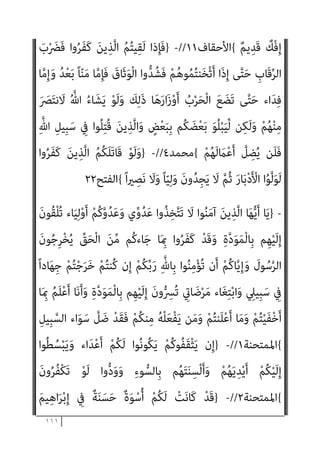 إِفْكٌ قَدِيمٌ {الأحقاف١١//- {فَإِذَا لَقِيتُمُ الَّذِينَ كَفَرُوا فَضَرْبَ
الرِّقَابِ حَتَّى إِذَا أَثْخَنْتُمُوهُمْ فَشُدُّوا الْوَثَاقَ فَإِمَّا مَنّاً بَعْدُ وَإِمَّا
فِدَاء حَتَّى تَضَعَ الْحَرْبُ أَوْزَارَهَا ذَلِكَ وَلَوْ يَشَاءُ اللَّهُ لَانتَصَرَ
مِنْهُمْ وَلَكِن لِّيَبْلُوَ بَعْضَكُم بِبَعْضٍ وَالَّذِينَ قُتِلُوا فِي سَبِيلِ اللَّهِ
فَلَن يُضِلَّ أَعْمَالَهُمْ {محمد٤//- {وَلَوْ قَاتَلَكُمُ الَّذِينَ كَفَرُوا
لَوَلَّوُا الْأَدْبَارَ ثُمَّ لَا يَجِدُونَ وَلِيّاً وَلَا نَصِيراً {الفتح٢٢
- {يَا أَيُّهَا الَّذِينَ آمَنُوا لَا تَتَّخِذُوا عَدُوِّي وَعَدُوَّكُمْ أَوْلِيَاء تُلْقُونَ
إِلَيْهِم بِالْمَوَدَّةِ وَقَدْ كَفَرُوا بِمَا جَاءكُم مِّنَ الْحَقِّ يُخْرِجُونَ
الرَّسُولَ وَإِيَّاكُمْ أَن تُؤْمِنُوا بِاللَّهِ رَبِّكُمْ إِن كُنتُمْ خَرَجْتُمْ جِهَاداً
فِي سَبِيلِي وَابْتِغَاء مَرْضَاتِي تُسِرُّونَ إِلَيْهِم بِالْمَوَدَّةِ وَأَنَا أَعْلَمُ بِمَا
أَخْفَيْتُمْ وَمَا أَعْلَنتُمْ وَمَن يَفْعَلْهُ مِنكُمْ فَقَدْ ضَلَّ سَوَاء السَّبِيلِ
{الممتحنة١//- {إِن يَثْقَفُوكُمْ يَكُونُوا لَكُمْ أَعْدَاء وَيَبْسُطُوا
إِلَيْكُمْ أَيْدِيَهُمْ وَأَلْسِنَتَهُم بِالسُّوءِ وَوَدُّوا لَوْ تَكْفُرُونَ
{الممتحنة٢//- {قَدْ كَانَتْ لَكُمْ أُسْوَةٌ حَسَنَةٌ فِي إِبْرَاهِيمَ
١١١